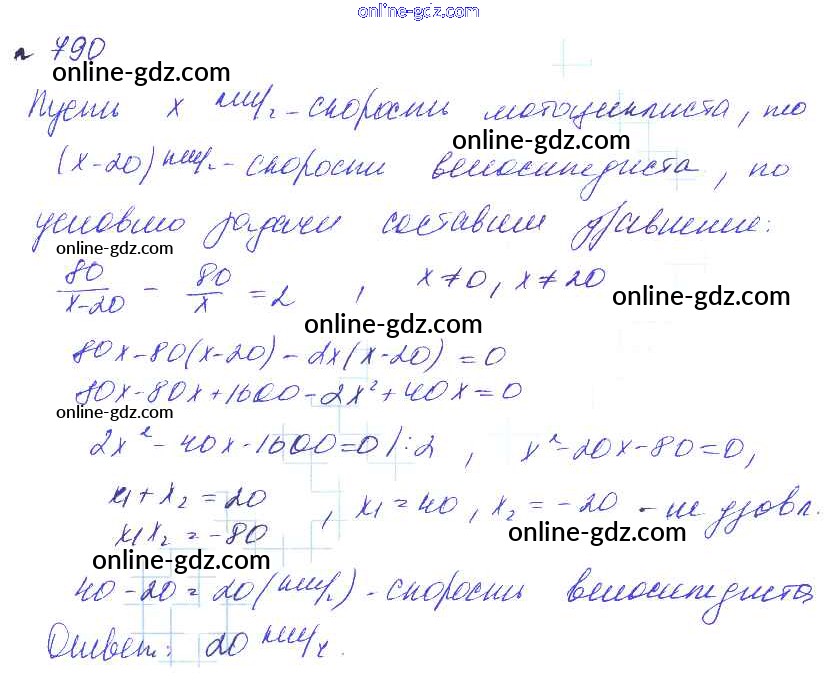 online-gdz.com
№ 790
online-gdz.com
Пусть x км/ч - скорость мотоциклиста, то
online-gdz.com
(x-20) км/ч - скорость велосипедиста, по
условию задачи составим уравнение:
online-gdz.com
80/(x-20) - 80/x = 2 , x≠0, x≠20
online-gdz.com
online-gdz.com
80x-80(x-20)-2x(x-20)=0
80x-80x+1600-2x²+40x=0
online-gdz.com
2x²-40x-1600=0 |:2 , x²-20x-80=0,
x₁+x₂=20
x₁x₂=-80 , x₁=40, x₂=-20 - не удовл.
online-gdz.com
online-gdz.com
40-20=20(км/ч) - скорость велосипедиста
online-gdz.com
Ответ: 20 км/ч.